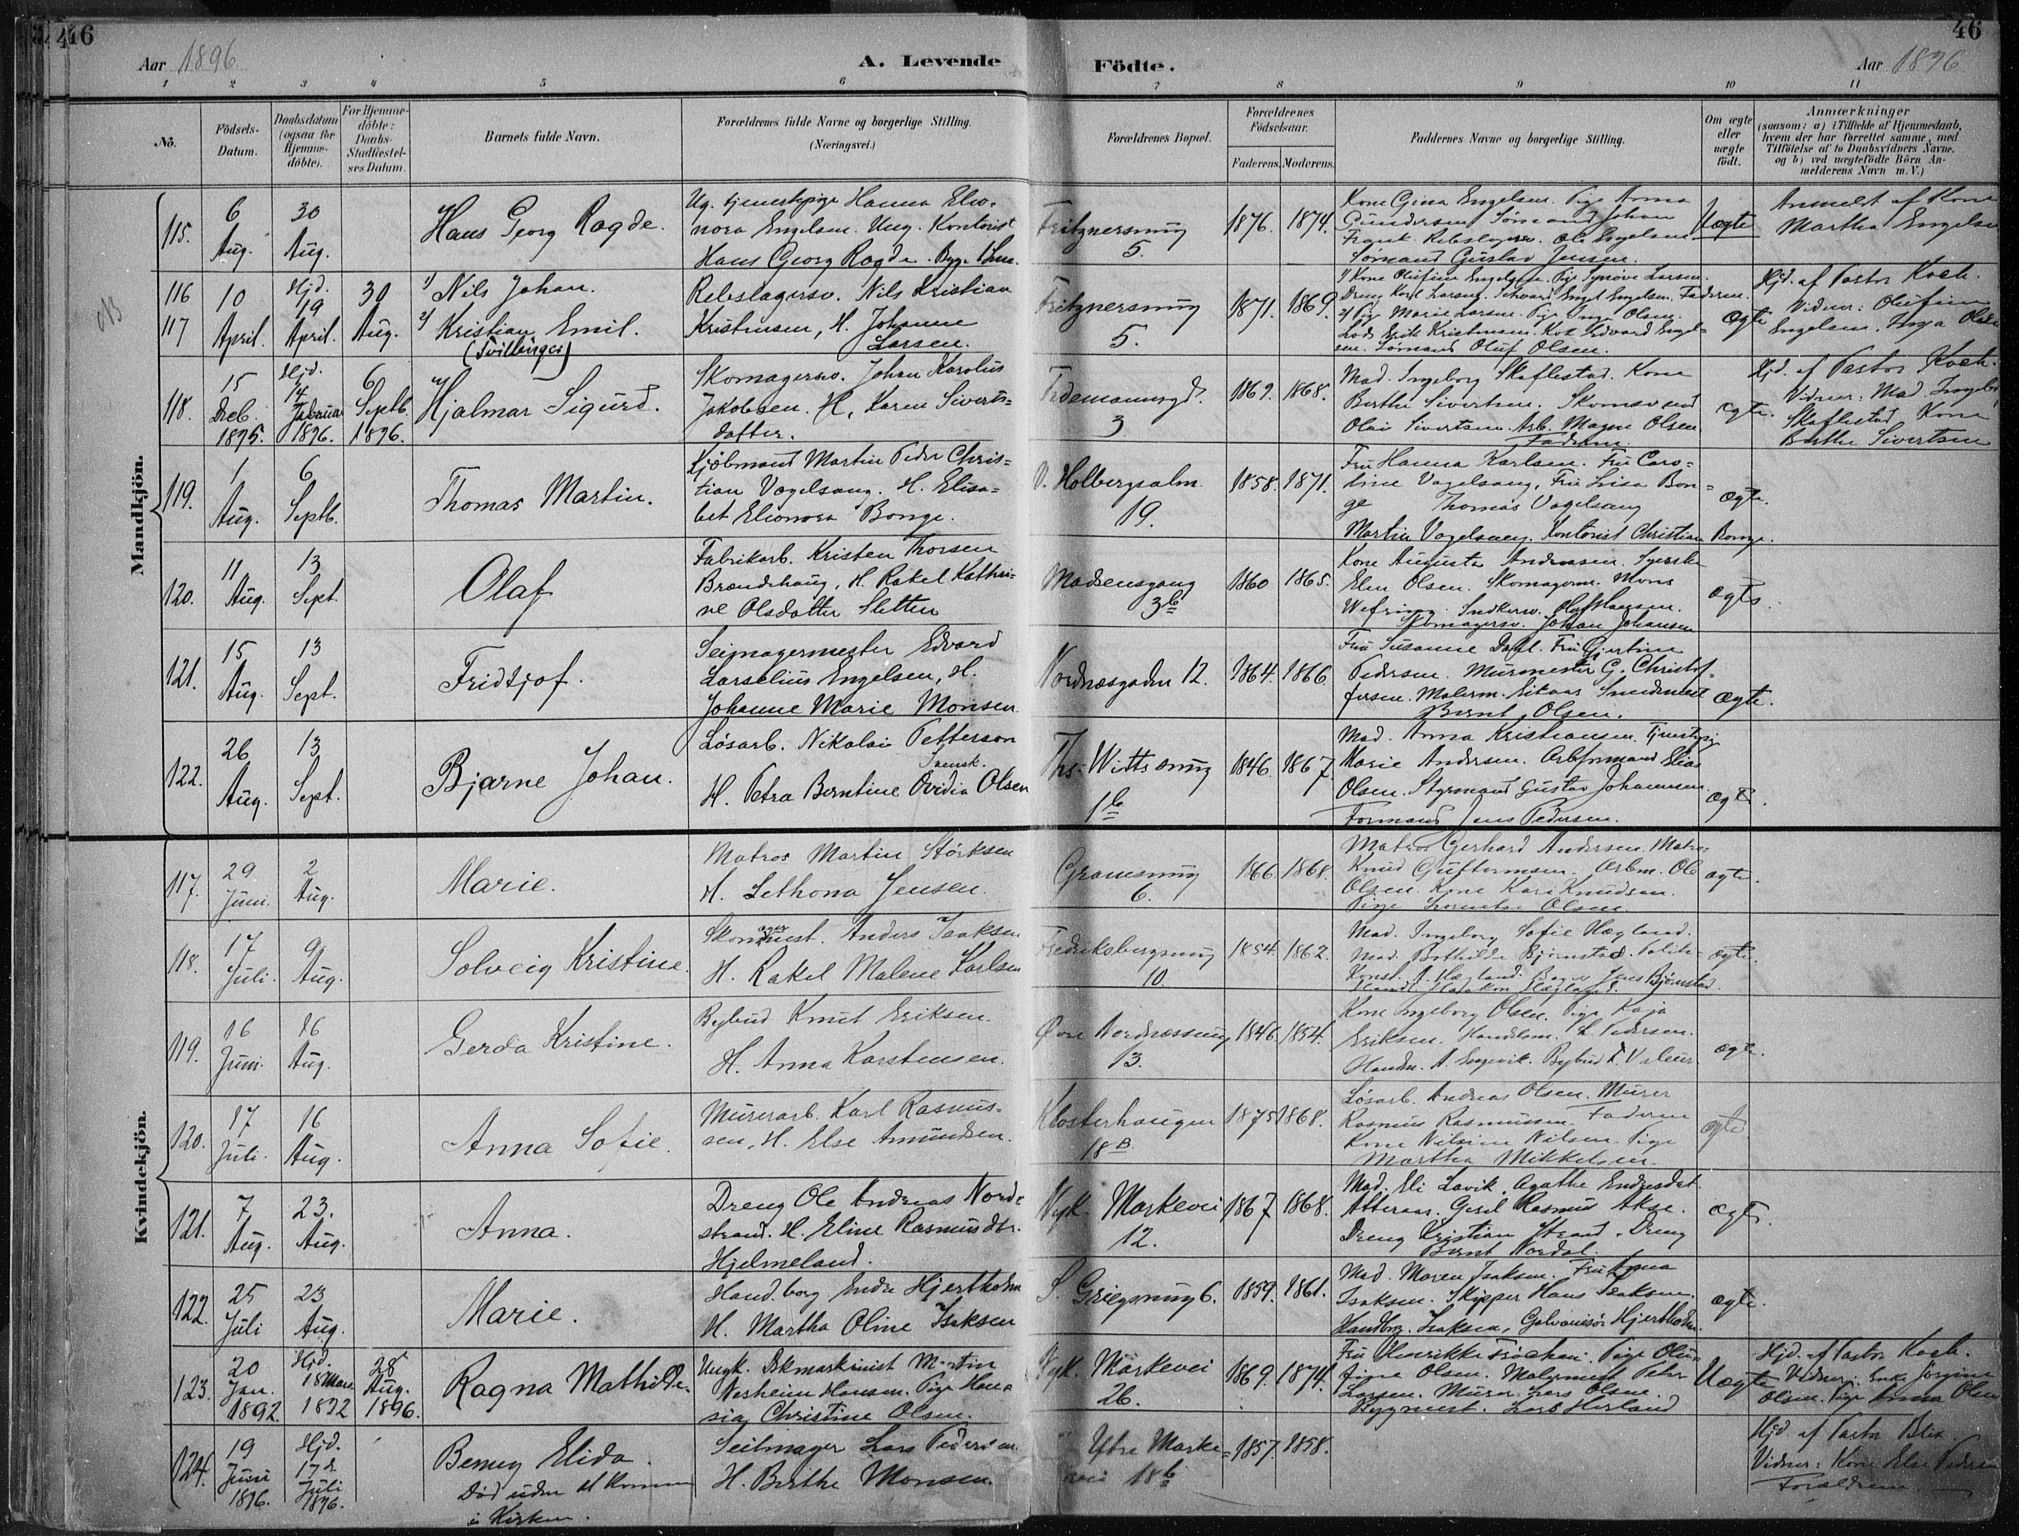 46
46
Aar 1896
A. Levende
Födte.
Aar 1896
1 2 3 4 5 6 7 8 9 10 11
No.
Födsels-Datum.
Daabsdatum (ogsaa for Hjemme-döbte).
For Hjemme-döbte: Daabs-Stadfæstel-ses Datum.
Barnets fulde Navn.
Forældrenes fulde Navne og borgerlige Stilling. (Næringsvei.)
Forældrenes Bopæl.
Forældrenes Födselsaar.
Faderens. Moderens.
Faddernes Navne og borgerlige Stilling.
Om ægte eller uægte födt.
Anmærkninger
(saasom: a) i Tilfælde af Hjemmedaab,
hvem der har forrettet samme, med
Tilföielse af to Daabsvidners Navne,
og b) ved uægtefödte Börn An-
melderens Navn m. V.)
Mandkjön.
115. 6 Aug. 30 Aug. Hans Georg Ragde.
Ug. tjenestepige Hanna Eleo-
nora Engelsen. Ung. Kontorist
Hans Georg Ragde.
Fritznersmug 5. 1876. 1874.
Kone Gina Engelsen. Pige Anna
Gundersen Sømand Johan
Ole Engelsen
Sømand Gustav Jensen.
Uægte
Anmeldt af Kone
Martha Engelsen
116 117 10 April. Hjd. 19 April. 30 Aug.
1) Nils Johan.
2) Kristian Emil.
(Tvillinger)
Rebslagersv. Nils Kristian
Kristensen, H. Johanne
Larsen.
Fritznersmug 5. 1871. 1869.
1) Kone Olufine Engelsen. Pige Synøve Larsen.
Dreng Karl Larsen. Faderen.
2) Pige Marie Larsen. Pige Inga Olsen.
Lods Erik Kristensen. Kok Edvard Engel-
sen. Sømand Oluf Olsen.
ægte
Hjd. af Pastor Koch.
Vidner: Olufine
Engelsen. Inga Olsen
118. 15 Decb. 1895. Hjd. 14 Februar 1896. 6 Septb. 1896.
Hjalmar Sigurd.
Skomagersv. Johan Karolius
Jakobsen. H. Karen Siverts-
datter.
Tidemannsgd. 3 1869. 1868.
Mad. Ingeborg Skaflestad. Kone
Berthe Sivertsen. Skomsvend
Olai Sivertsen. Arb. Magne Olsen
Faderen.
ægte.
Hjd. af Pastor Koch.
Vidner: Mad. Ingeborg
Skaflestad Kone
Berthe Sivertsen
119. 1 Aug. 6 Septb. Thomas Martin.
Kjøbmand Martin Peder Chris-
tian Vogelsang. H. Elisa-
bet Elionora Bonge.
V. Holbergsalm. 19. 1858. 1871.
Fru Hanna Karlsen. Fru Caro-
line Vogelsang, Fru Lisa Bon-
ge Thomas Vogelsang
Martin Vogelsang. Kontorist Christian Bonge.
ægte.
120. 11 Aug. 13 Sept. Olaf
Fabrikarb. Kristen Thorsen
Brandshaug, H. Rakel Kathri-
ne Olsdatter Sletten
Madsensgang 3b 1860 1865.
Kone Augusta Andreasen. Syerske
Elen Olsen. Skomagerm. Mons
Wefring. Snekersv. Olaf Hansen.
Skomagersv. Johan Johansen
ægte.
121. 15 Aug. 13 Sept. Fridtjof.
Seilmagermester Edvard
Larselius Engelsen, H.
Johanne Marie Monsen
Nordnæsgaden 12. 1864. 1866
Fru Susanne Dahl. Fru Gjertine
Pedersen. Murmester G. Christof-
fersen. Malerm.
Bernt Olsen.
ægte.
122. 26 Aug. 13 Sept. Bjarne Johan.
Løsarb. Nikolai Petterson
Svensk.
H. Petra Berntine Ovidia Olsen
Ths. Wittsmug 1b 1846. 1867.
Mad. Anna Kristiansen. Tjenestepige
Marie Andersen. Arbformand Elias
Olsen. Styrmand Gustav Johannesen.
Formand Jens Pedersen.
ægte.
Kvindekjön.
117. 29 Juni. 2 Aug. Marie.
Matros Martin Størksen
H. Lethona Jensen.
Gramsmug 6. 1866. 1868.
Matros Gerhard Andersen. Matros
Knud Guttormsen. Arbm. Ole
Olsen. Kone Kari Knudsen.
Pige Olsen.
ægte.
118. 17 Juli. 9 Aug. Solveig Kristine.
Skomagermest. Anders Isaksen
H. Rakel Malene Karlsen
Fredriksbergsmug 10. 1854. 1862.
Mad. Ingeborg Sofie Hægland.
Mad. Bothilde Bjørnstad. Politi-
Konst. A. Hægland. Bager Jens Bjørnstad.
ægte.
119. 16 Juni. 16 Aug. Gerda Kristine.
Bybud Knut Eriksen.
H. Anna Karstensen.
Øvre Nordnæssmug 13. 1846. 1854.
Kone Ingeborg Olsen. Pige Kaja
Eriksen. Handelsm. L. Pedersen.
Handm. A. Engevik. Bybud
ægte.
120. 17 Juli. 16 Aug. Anna Sofie.
Murerarb. Karl Rasmus-
sen, H. Else Amundsen.
Klosterhaugen 18B. 1875 1868.
Løsarb. Andreas Olsen. Murer
Rasmus Rasmussen. Faderen
Kone Nilsine Nilsen. Pige
Martha Mikkelsen.
ægte
121. 7 Aug. 23. Aug. Anna.
Dreng Ole Andreas Nord-
strand. H. Eline Rasmusdtr.
Hjelmeland.
Nyk. Markevei 12. 1867 1868.
Mad. Eli Lavik. Agathe Endresdat.
Gesel Rasmus Akse.
Dreng Kristian Strand. Dreng
Bernt Nordal.
ægte.
122. 25 Juli 23 Aug. Marie.
Hand.borg Endre Hjertholm
H. Martha Oline Isaksen
S. Griegsmug 6. 1859. 1861.
Mad. Maren Isaksen. Fru Anna
Isaksen. Skipper Hans Isaksen.
Handborg. Isaksen, Galvanisør Hjertholm.
ægte.
123. 20 Jan. 1892. Hjd. 18 Mars 1892 28 Aug. 1896.
Ragna Mathilde.
Ungk. Dskmaskinist Martin
Nesheim Hansen. Pige Han-
sia Christine Olsen.
Nyk. Markevei 26. 1869. 1874.
Fru Henrikke Pige Olu-
fine Olsen. Malermest. Peder
Larsen. Murer Lars Olsen.
Bygmest. Lars Herland
Uægte
Hjd. af Pastor Koch.
Vidner: Enke Jørgine
Olsen. Pige Anna Olsen
124. 19 Juni 1896. Hjd. 17d Juli 1896.
Benny Elida.
Død uden at komme
i Kirken.
Seilmager Lars Pedersen
H. Berthe Monsen.
Ytre Marke-
vei 18b 1857. 1858.
Hjd. af Pastor Blix.
Vidner: Kone Else Pedersen
Forældrene.